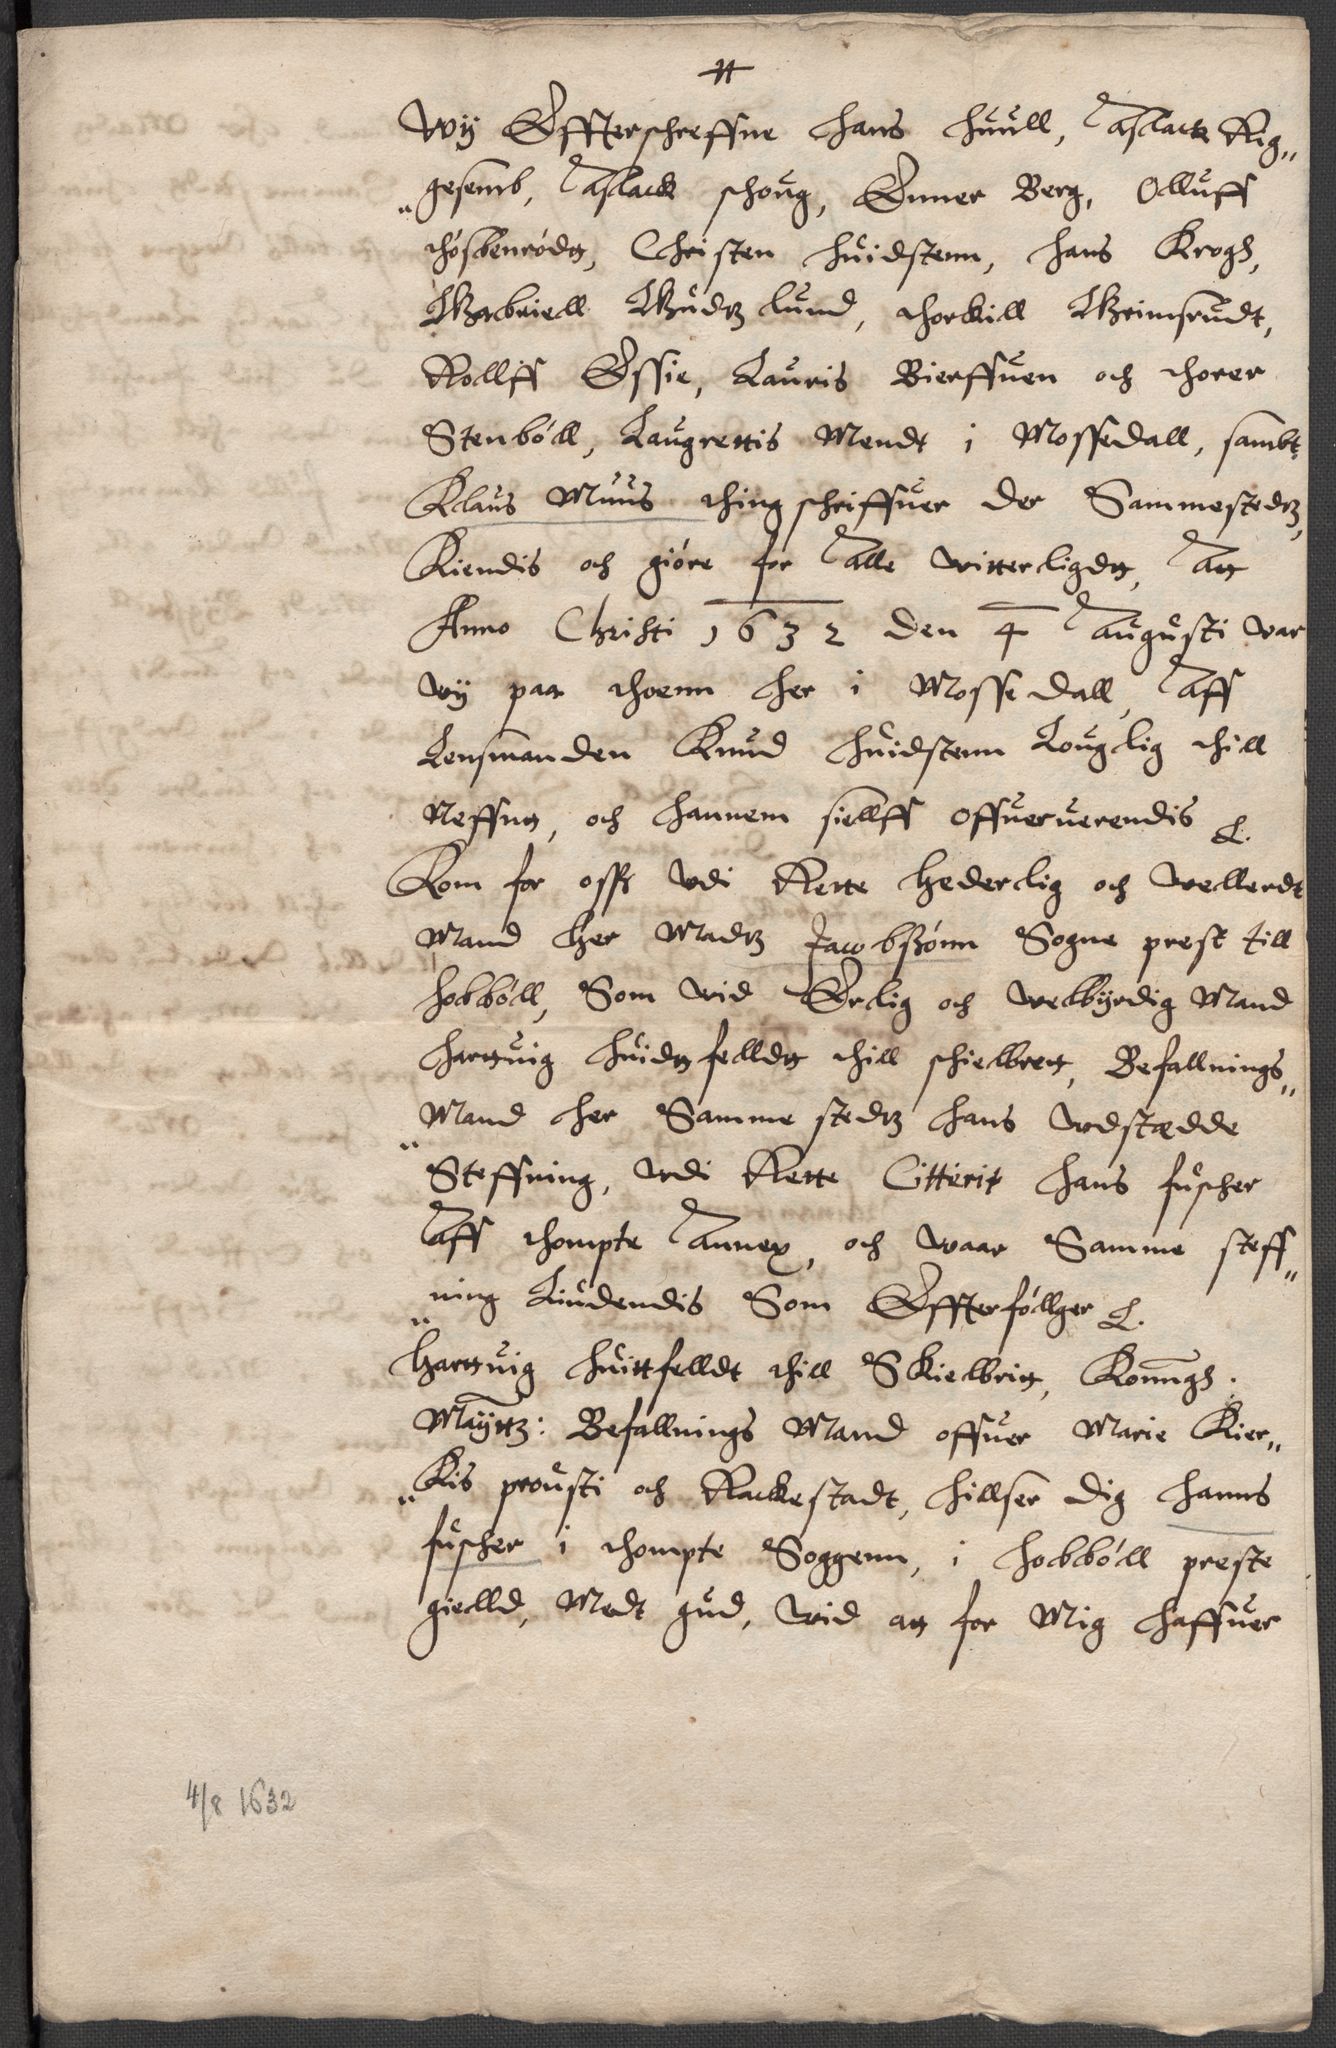 Wij Effterschreffne Hans Huull, Aslack Rig„
„gesemb, Aslack Schoug, Enner Berg, Olluff
Thósbenródt, Christen Huidstenn, Hans Krogh,
Gabriell Gudtz Lund, Thorkill Grimsrudt,
Rolliff Essie, Lauris Bierffuen och Thorer
Stenbóll, Laugrettis Mendt i Mossedall, sambt
Klaus Muus Thingschriffuer der Sammestedtz,
Kiendis och gióre for Alle vitterligdt, At
Anno Christi 1632 den 4 Augusti var
wij paa Thoenn her i Mossedall, Aff
Lensmanden Knud Huidstenn Louglig thill
Neffnt, och hannem siellff offueruerendis etc.
Kom for osß vdi Rette Hederlig och Vellerdt
Mand Her Madtz Jacobßónn Sogne prest till
Hobbóll, Som vid Erlig och velbyrdig Mand
Hartuig Huidtfelldt thill Schielbret, Befallnings„
„Mand her Samme stedtz hans vdstædde
Steffning, vdi Rette Citterit Hans Fuscher
Aff Thompte Annex, och vaar Samme steff„
„ning Liudendis Som Effterfóllger etc.
Hartuig Huittfelldt thill Skielbrit, Konngh.
Mayttz: Befallnings Mand offuer Marie Kier„
„Kis prousti och Rackestadt, Hillser dig Hanns
Fuscher i Thompte Soggenn, i Hobbóll preste
gielld, Medt gud, vid at for Mig haffuer
4/8 1632